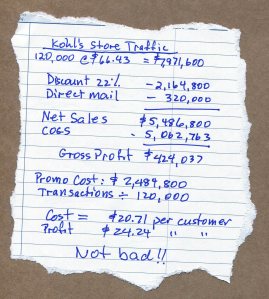 Kohl's Store Traffic
120,000 @ $66.43 = $7,971,600
Discount 22% - 2,164,800
Direct mail - 320,000
Net Sales $5,486,800
COGS - 5,062,763
Gross Profit $424,037
Promo Cost: $2,484,800
Transactions ÷ 120,000
Cost = $20.71 per customer
Profit $24.24 " "
Not bad!!